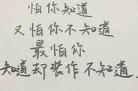 怕你知道
又怕你不知道
最怕你
知道却装作不知道.